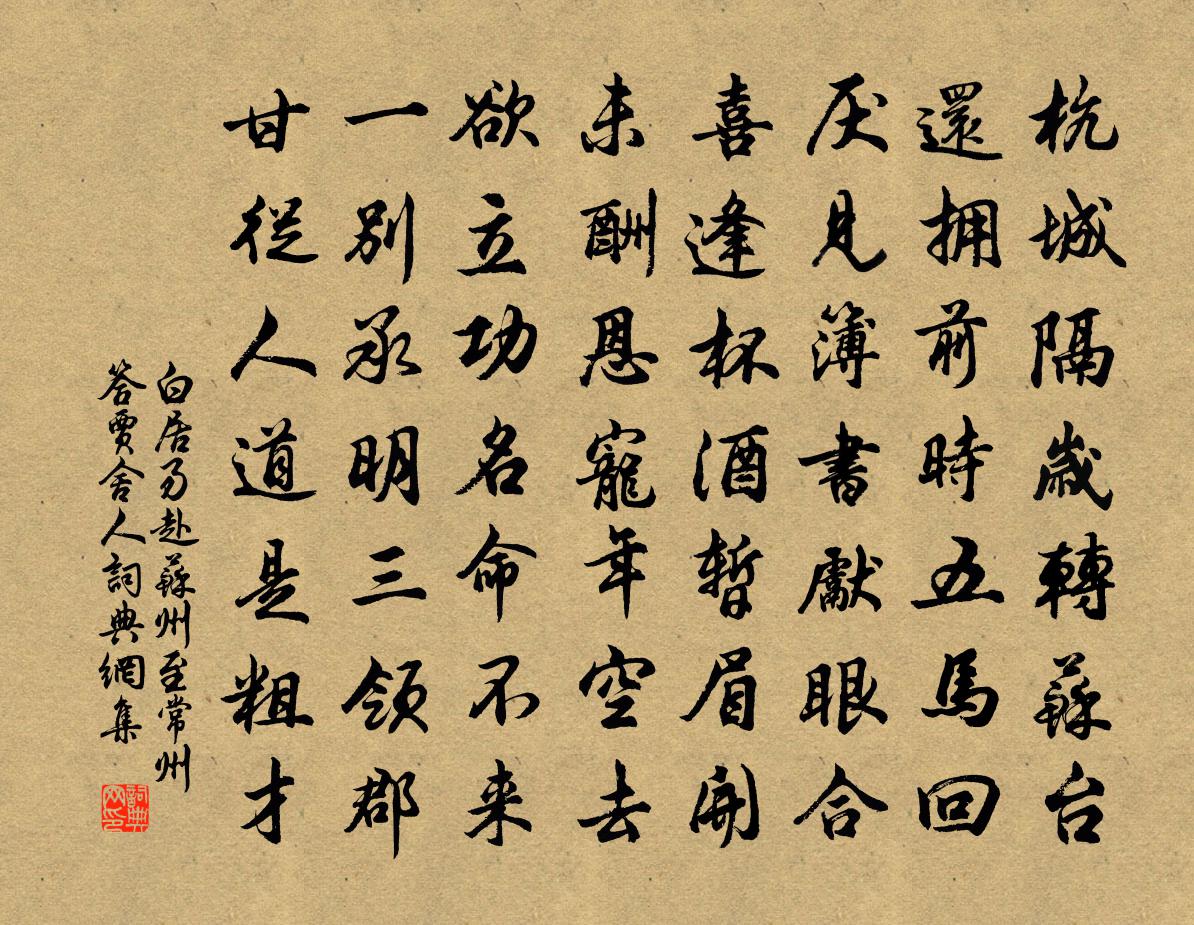 杭城隔歲轉蘇台
還拥前時五馬回
厌見簿書獻眼合
喜逢杯酒暫眉開
未酬恩寵年空去
欲立功名命不来
一別承明三領郡
甘從人道是粗才
白居易赴蘇州至常州
答賈舍人詞典網集
詞典网印